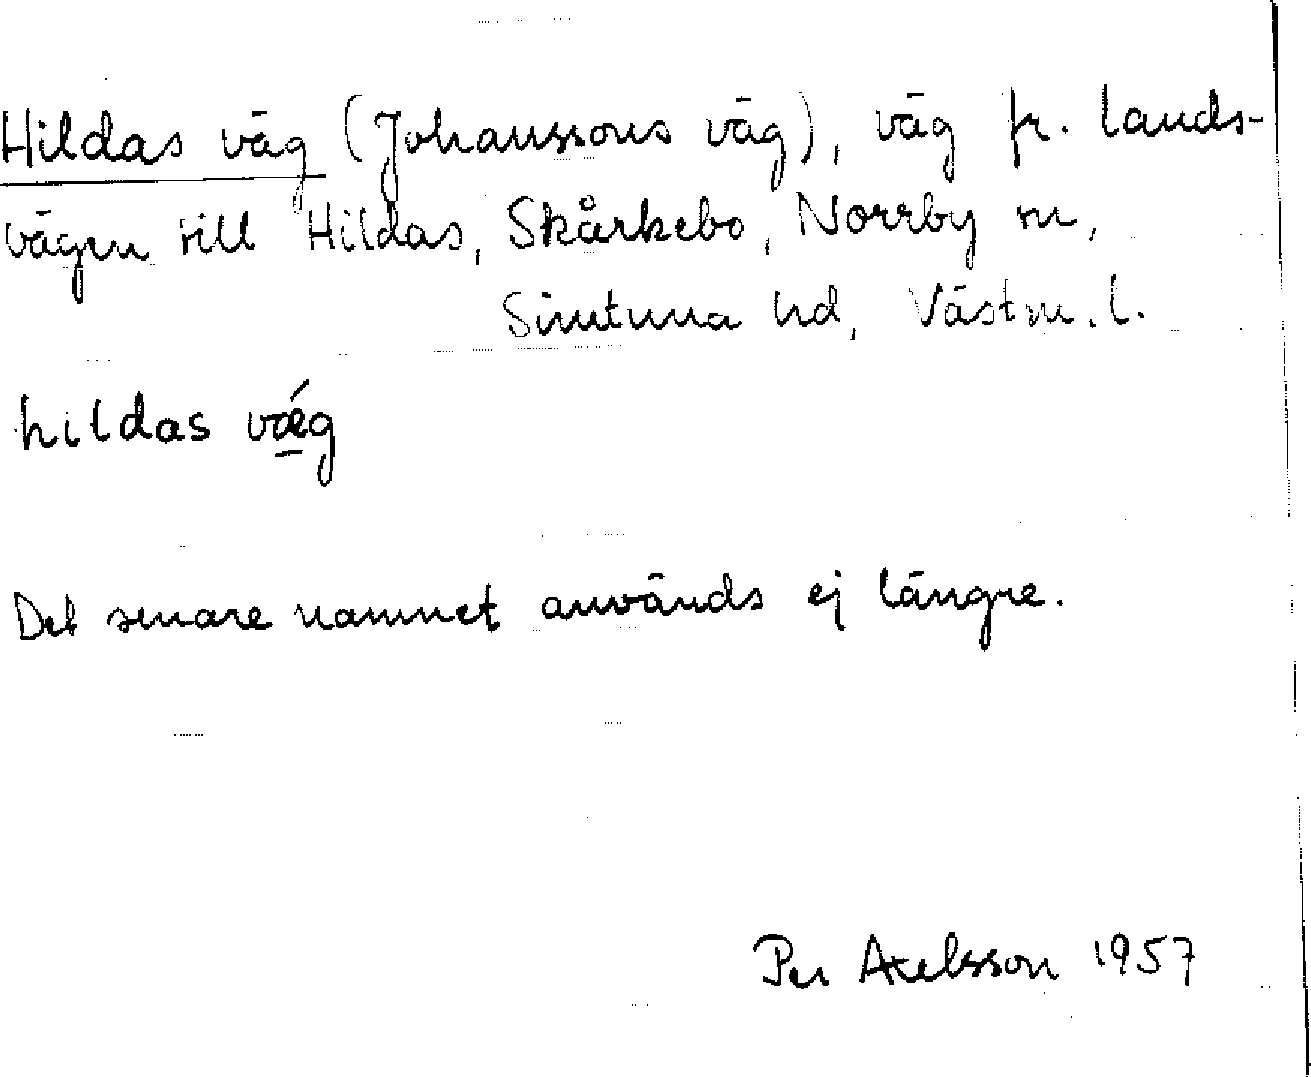 Hildas väg (Johanssons väg), väg fr. lands-
vägen till Hildas, Skårkebo, Norrby sn,
Simtuna hd, Västm. l.
hildas vǽg
Det senare namnet används ej längre.
Per Axelsson 1957